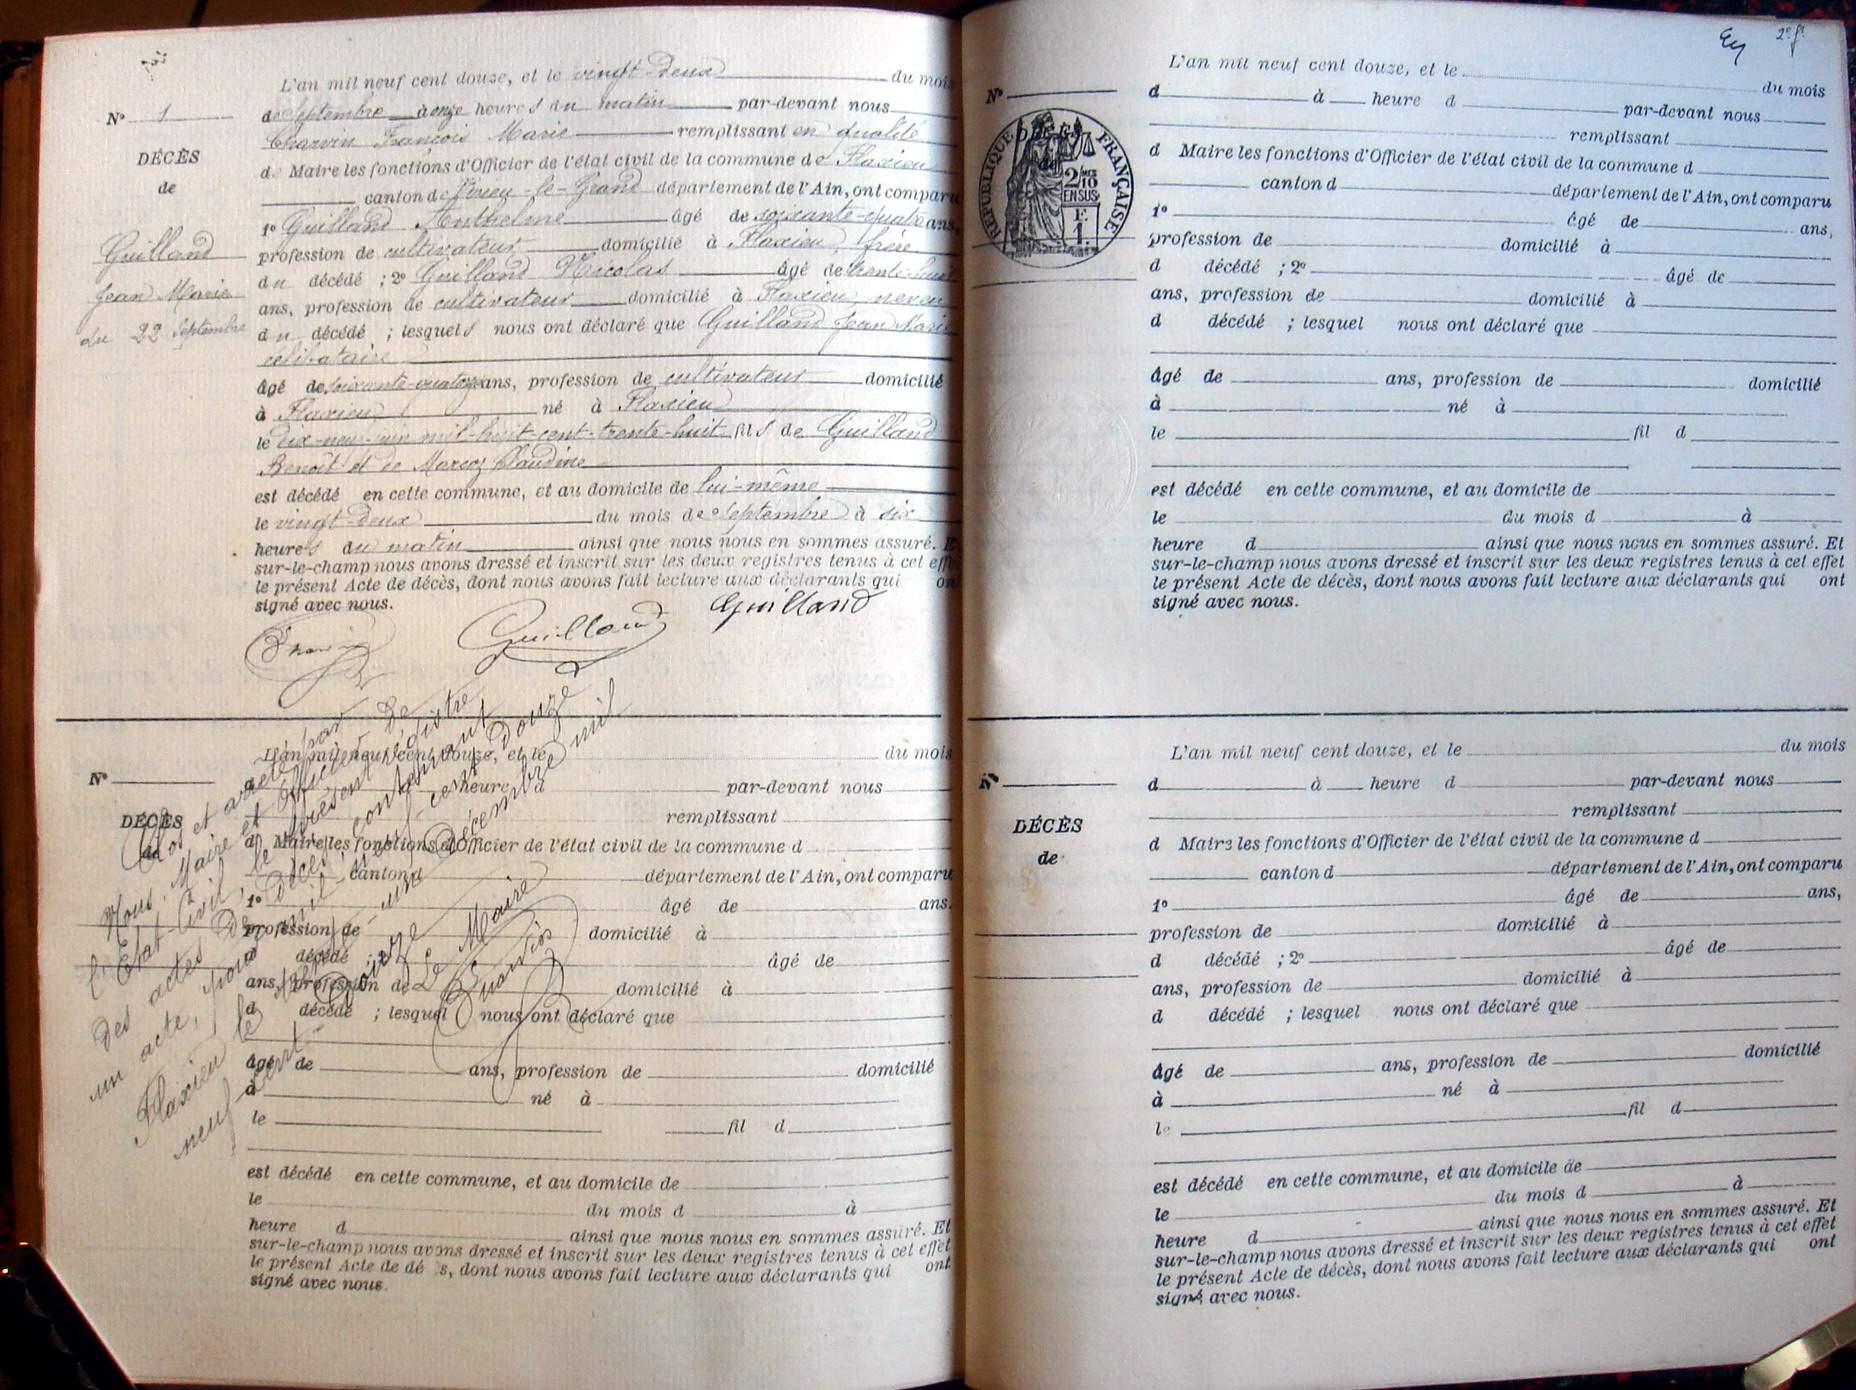 L'an mil neuf cent douze, et le vingt-deux du mois
de Septembre à onze heures du matin par-devant nous
Charvin François Marie remplissant en qualité
de Maire les fonctions d'Officier de l'état civil de la commune de Flaxieu
canton de Virieu-le-Grand département de l'Ain, ont comparu
1° Guilland Anthelme âgé de soixante-quatre ans,
profession de cultivateur domicilié à Flaxieu, frère
du décédé ; 2° Guilland Nicolas âgé de trente-huit
ans, profession de cultivateur domicilié à Flaxieu, neveu
du décédé ; lesquels nous ont déclaré que Guilland Jean Marie
célibataire
âgé de soixante-quatorze ans, profession de cultivateur domicilié
à Flaxieu né à Flaxieu
le dix-neuf juin mil-huit-cent-trente-huit fils de Guilland
Benoît et de Marcoz Claudine
est décédé en cette commune, et au domicile de lui-même
le vingt-deux du mois de Septembre à six
heures du matin ainsi que nous nous en sommes assuré. E
sur-le-champ nous avons dressé et inscrit sur les deux registres tenus à cet effe
le présent Acte de décès, dont nous avons fait lecture aux déclarants qui on
signé avec nous.
N° 1
DÉCÈS
de
Guilland
Jean Marie
du 22 Septembre
Guilland
Guilland
L'an mil neuf cent douze, et le du mois
N°
heure d par-devant nous
remplissant
DÉCÈS
de
d Maire les fonctions d'Officier de l'état civil de la commune d
canton d département de l'Ain, ont comparu
1° âgé de ans.
profession de domicilié à
d décédé ; 2° âgé de
ans, profession de domicilié à
d décédé ; lesquel nous ont déclaré que
âgé de ans, profession de domicilié
à né à
le fil d
est décédé en cette commune, et au domicile de
le du mois d à
heure d ainsi que nous nous en sommes assuré. Et
sur-le-champ nous avons dressé et inscrit sur les deux registres tenus à cet effet
le présent Acte de dé s, dont nous avons fait lecture aux déclarants qui ont
signé avec nous.
Clos et arrêté par
Nous, Maire et Officier de
l'Etat-Civil, le présent régistre
des actes de Décès, contenant
un acte, pour mil-neuf-cent-douze
Flaxieu le trente-un Décembre mil
neuf cent-douze
Le Maire
Charvin
2e ft
L'an mil neuf cent douze, et le du mois
N°
d à heure d par-devant nous
remplissant
d Maire les fonctions d'Officier de l'état civil de la commune d
canton d département de l'Ain, ont comparu
1° âgé de ans,
profession de domicilié à
d décédé ; 2° âgé de
ans, profession de domicilié à
d décédé ; lesquel nous ont déclaré que
âgé de ans, profession de domicilié
à né à
le fil d
est décédé en cette commune, et au domicile de
le du mois d à
heure d ainsi que nous nous en sommes assuré. Et
sur-le-champ nous avons dressé et inscrit sur les deux registres tenus à cet effet
le présent Acte de décès, dont nous avons fait lecture aux déclarants qui ont
signé avec nous.
RÉPUBLIQUE FRANÇAISE
2/10
EN SUS
F.
1.
L'an mil neuf cent douze, et le du mois
N°
d à heure d par-devant nous
remplissant
DÉCÈS
de
d Maire les fonctions d'Officier de l'état civil de la commune d
canton d département de l'Ain, ont comparu
1° âgé de ans,
profession de domicilié à
d décédé ; 2° âgé de
ans, profession de domicilié à
d décédé ; lesquel nous ont déclaré que
âgé de ans, profession de domicilié
à né à
le fil d
est décédé en cette commune, et au domicile de
le du mois d à
heure d ainsi que nous nous en sommes assuré. Et
sur-le-champ nous avons dressé et inscrit sur les deux registres tenus à cet effet
le présent Acte de décès, dont nous avons fait lecture aux déclarants qui ont
signé avec nous.